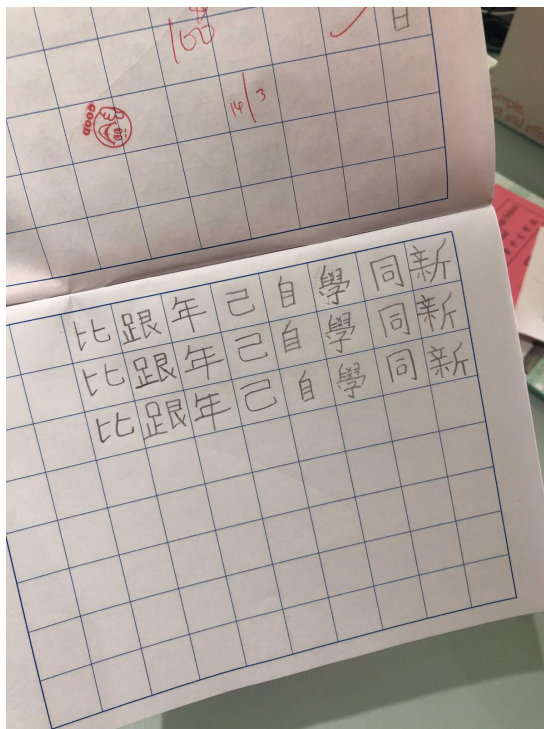 日
100
14/3
GOOD
新新新
同同同
學學學
自自自
己己己
年年年
跟跟跟
比比比
Simple,